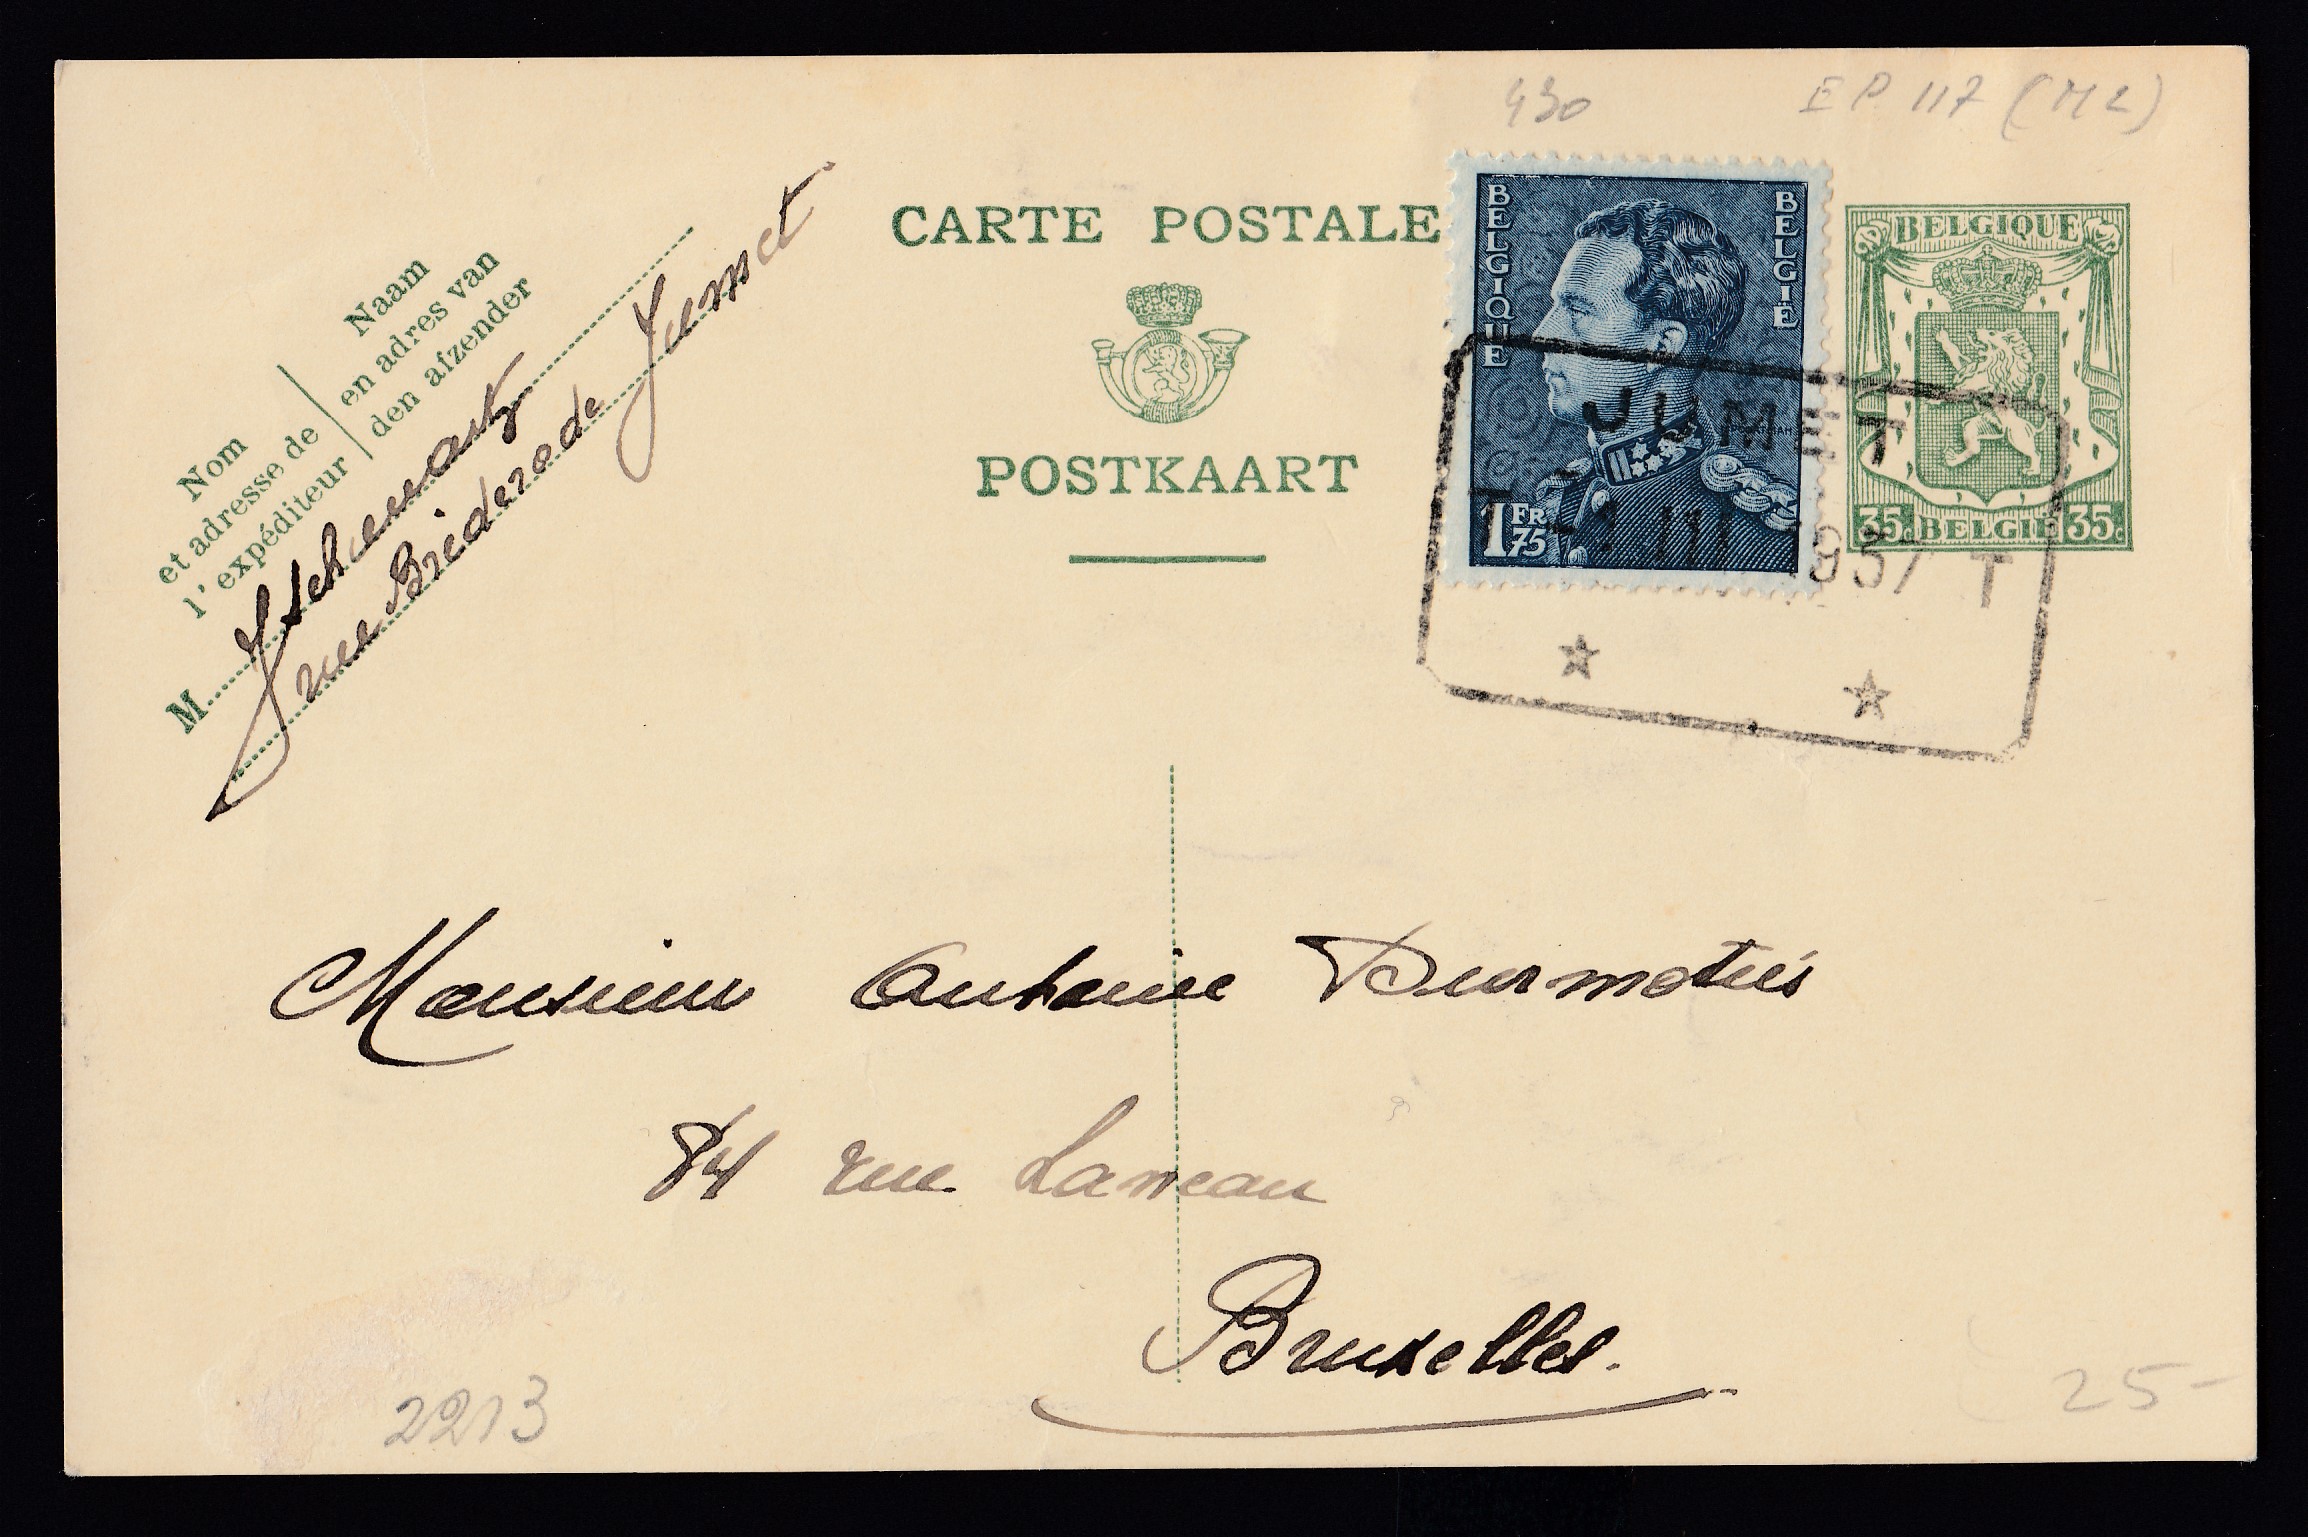 430
EP. 117 (ML)
CARTE POSTALE
POSTKAART
Nom
et adresse de
l'expéditeur
Naam
en adres van
den afzender
M
rue Bréderode Jumet
BELGIQUE
BELGIË
1 FR 75
BELGIQUE
35c BELGIË 35c
JUMET
T T
III 1937
Monsieur Antoine
84 rue Laneau
Bruxelles.
2213
25-